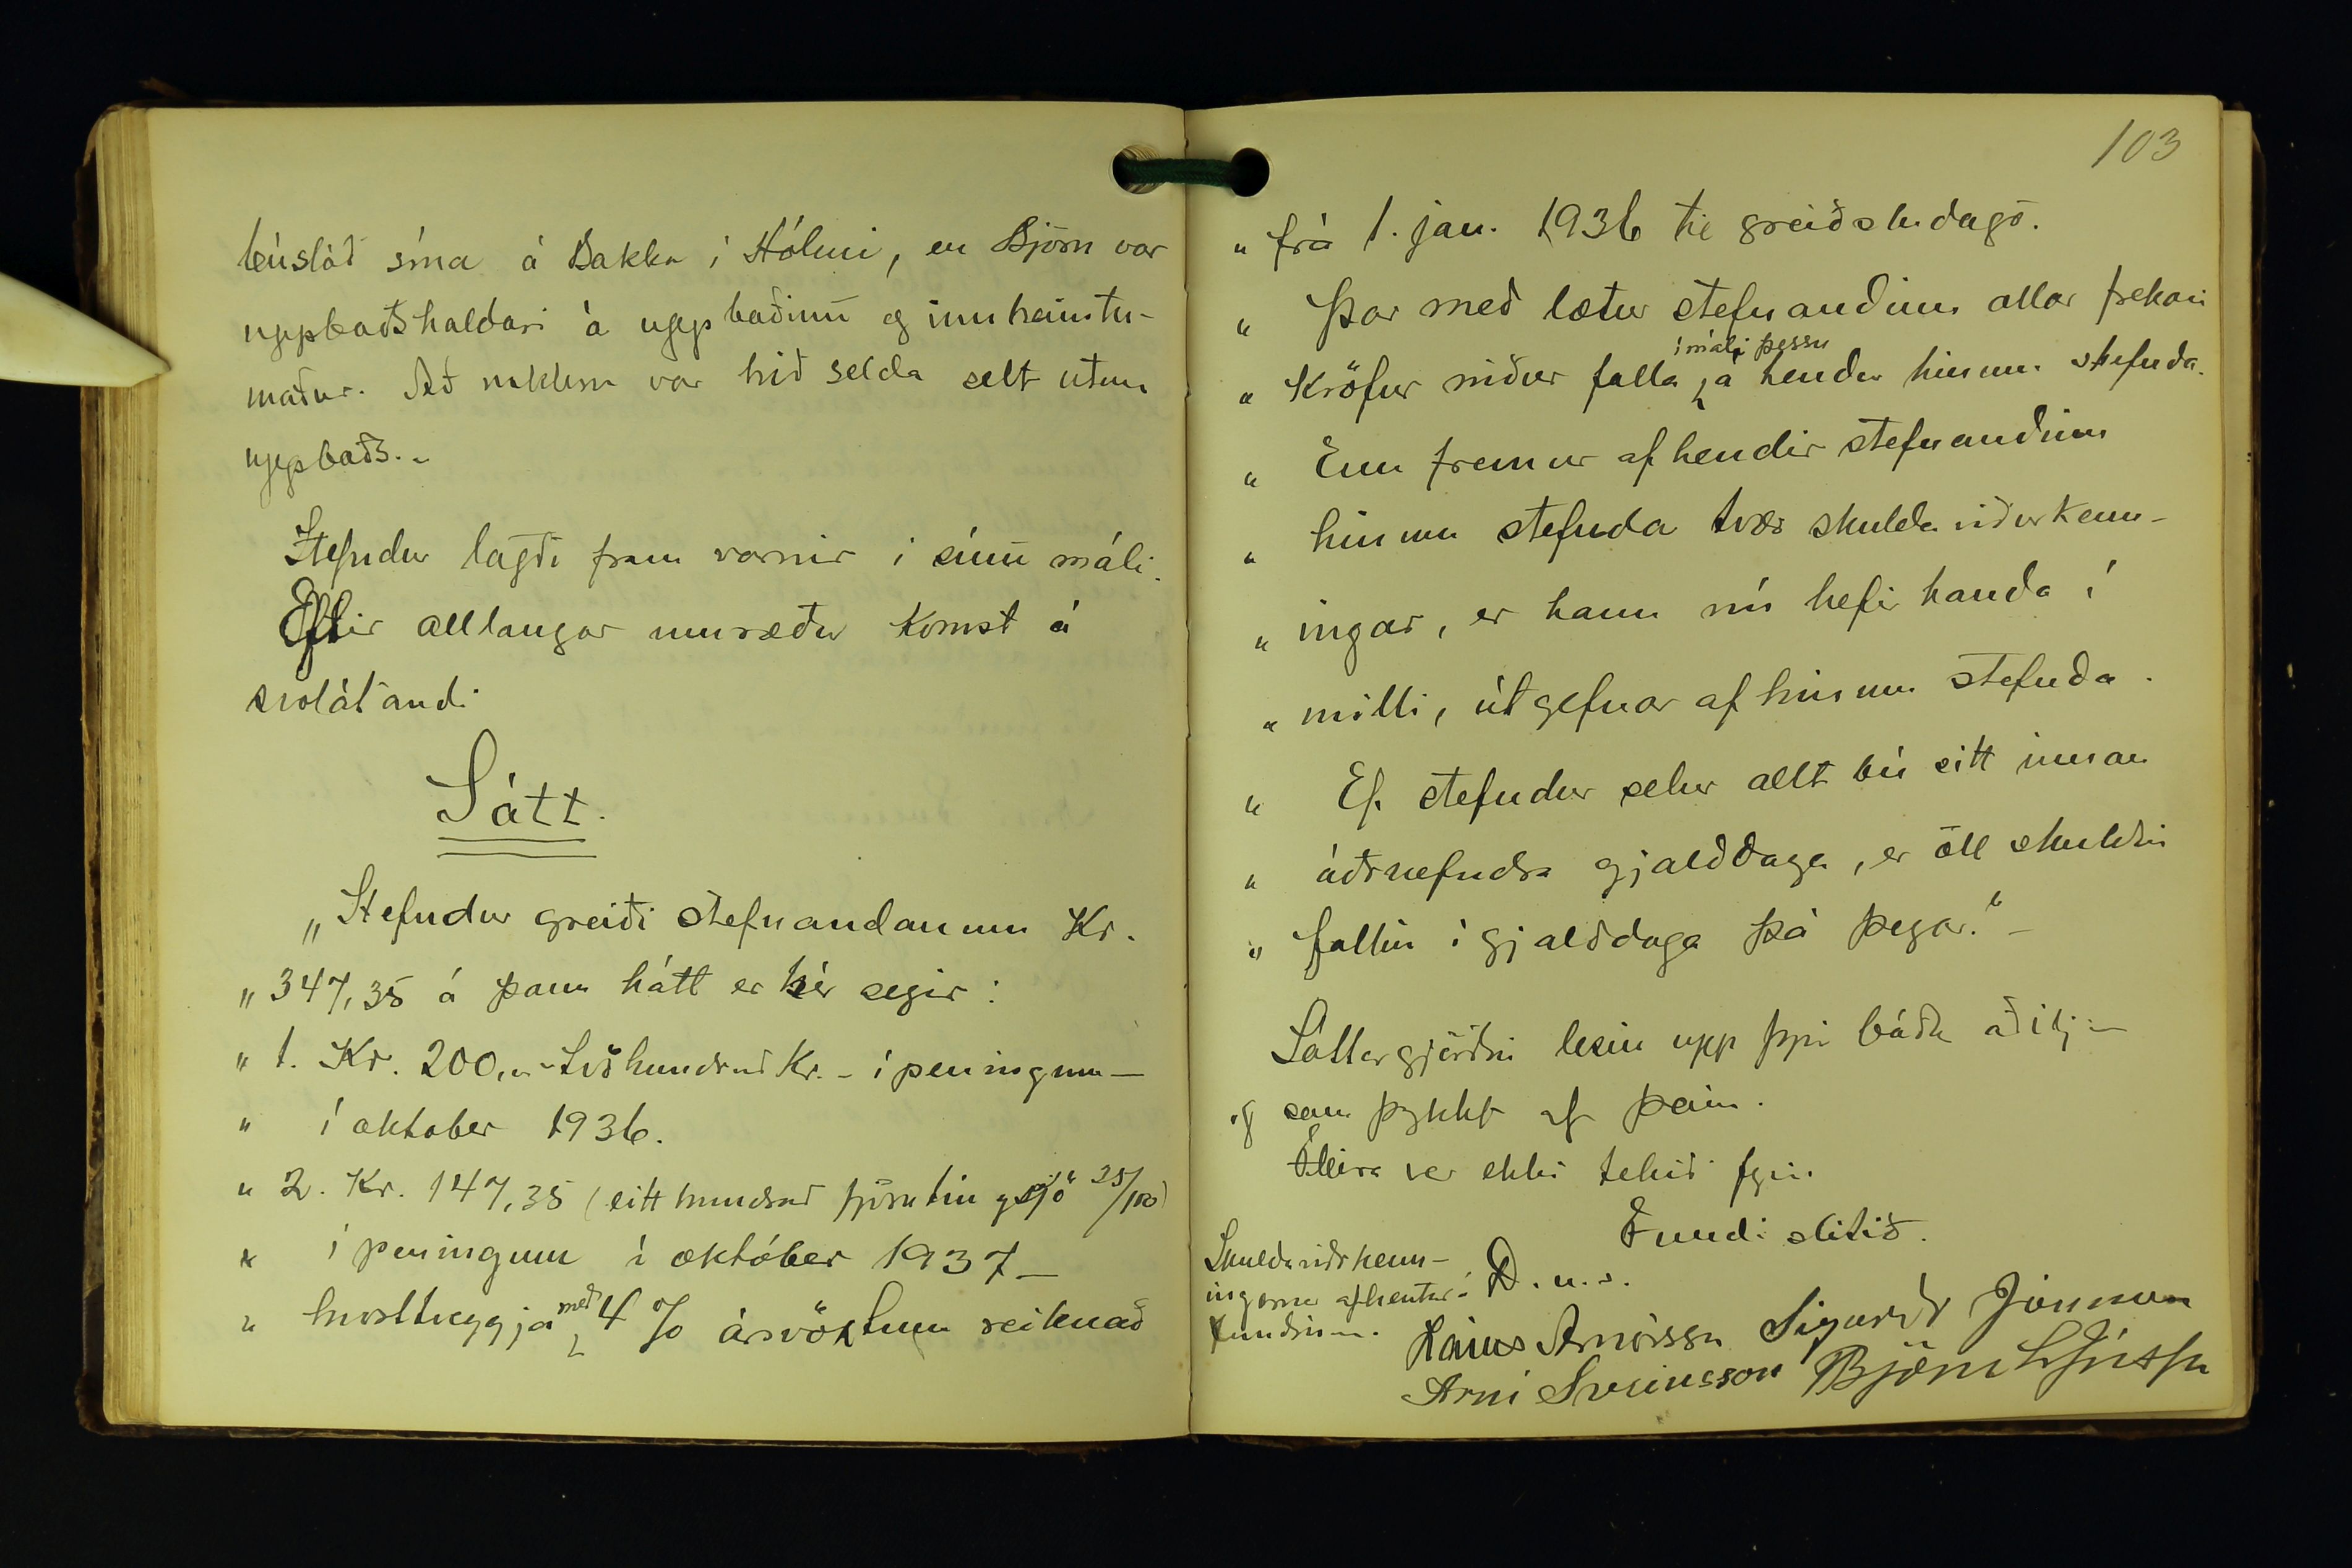 búslóð sína á Bakka í Hólmi, en Björn var
uppboðshaldari á uppboðinu og innheimtu-
maður. Að nokkru var hið selda selt utan
uppboðs.-
Stefndur lagði fram varnir í sínu máli.
Eftir alllangar umræður komst á
svolátandi
Sátt.
„Stefndur greiði stefnandanum Kr.
„ 347,35 á þann hátt er hér segir:
„ 1. Kr. 200,- - tvöhundruð Kr. - í peningum -
„ í oktober 1936.
„ 2. Kr. 147,35 (eitt hundrað fjörutíu og sjö 35/100)
„ í peningum í október 1937 -
„ hvorttveggja með 4 % ársvöxtum reiknað
103
„ frá 1. jan. 1936 til greiðsludags.
„ Þar með lætur stefnandinn allar frekari
„ Kröfur niður falla í máli þessu á hendur hinum stefnda.
„ Enn fremur afhendir stefnandinn
„ hinum stefnda tvær skuldaviðurkenn-
„ ingar, er hann nú hefir handa í
„ milli, útgefnar af hinum stefnda.
„ Ef stefndur selur allt bú sitt innan
„ áðrnefndra gjalddaga, er öll skuldin
„ fallin í gjalddaga þá þegar." -
Sáttargjörðin lesin upp fyrir báða aðilja
og samþykkt af þeim.
Fleira var ekki tekið fyrir.
Fundi slitið.
Skuldaviðrkenn-
ingarnar afhentar í
fundinum.
D. u. s.
Lárus Arnórsson Sigurður Jónsson
Árni Sveinsson Björn